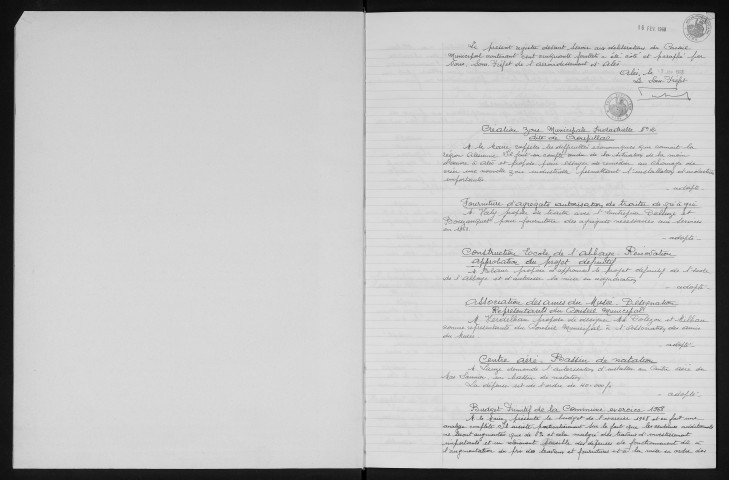 16 FEV. 1968
Le présent registre destiné servir aux délibérations du Conseil
Municipal contenant cent cinquante feuillets a été coté et paraphé par
Nous, Sous-Préfet de l'arrondissement d'Alès
Alès, le
Le Sous-Préfet
Creation Zone Municipale Industrielle N°
dite de Croupillac
M. le Maire rappelle les difficultés économiques que connait la
région Alésienne. Il fait un compte rendu de la situation de la main
d'œuvre à Alès et propose pour essayer de remédier au chômage de
créer une nouvelle zone industrielle permettant l'installation
importante
- adopté -
Fourniture d'agrégats autorisation de traiter de gré à gré
M. propose de traiter avec l'entreprise et
pour fourniture des agrégats nécessaires aux services
en 1968
- adopté -
Construction Ecole de l'Abbaye. Rénovation
approbation du projet définitif
M. propose d'approuver le projet définitif de l'école
de l'Abbaye et d'autoriser la mise en adjudication
- adopté -
Association des amis du Musée. Désignation
Représentants du Conseil Municipal
M. propose de désigner MM. et
comme représentants du Conseil Municipal à l'association des amis
du Musée
- adopté -
Centre aéré. Bassin de natation
M. demande l'autorisation d'installer au Centre aéré de
un bassin de natation
La dépense est de l'ordre de 40.000 F
- adopté -
Budget Primitif de la Commune exercice 1968
M. le Maire, présente le budget de l'exercice 1968 et en fait une
analyse complète. Il insiste particulièrement sur le fait que les centimes additionnels
ne seront augmentés que de 8% et cela malgré des travaux d'investissement
importants et un accroissement possible des dépenses de fonctionnement dû à
l'augmentation du prix des travaux et fournitures et à la mise en ordre des